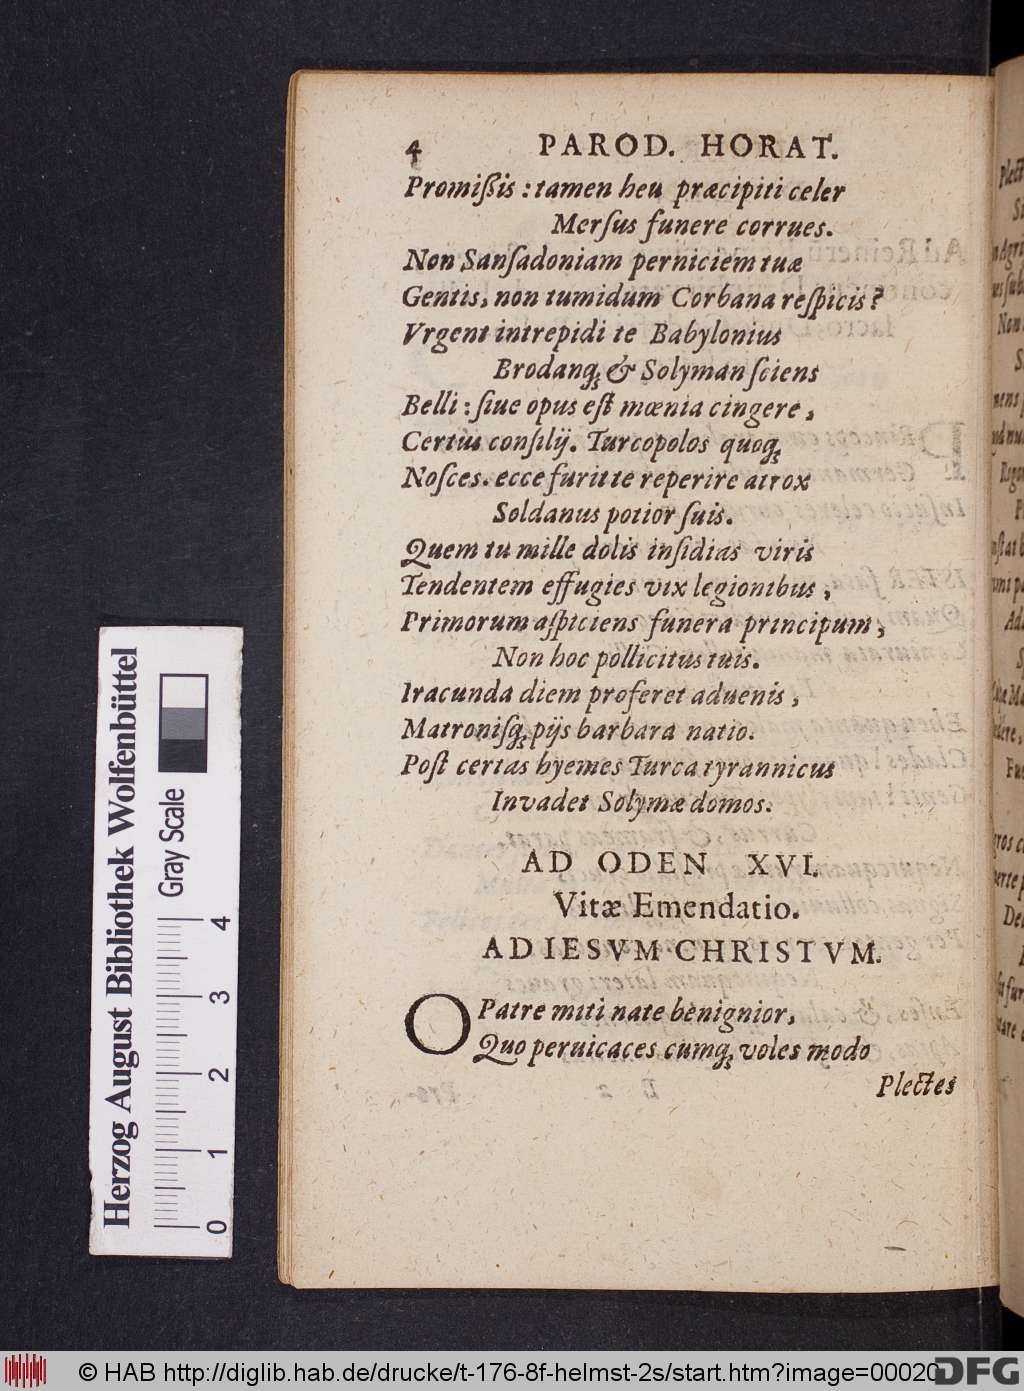 4 PAROD. HORAT.
Promißis : tamen heu præcipiti celer
Merſus funere corrues.
Non Sanſadoniam perniciem tuæ
Gentis, non tumidum Corbana reſpicis?
Vrgent intrepidi te Babylonius
Brodanq́; & Solyman ſciens
Belli : ſiue opus eſt mœnia cingere,
Certus conſilij. Turcopolos quoq́;
Noſces. ecce furit te reperire atrox
Soldanus potior ſuis.
Quem tu mille dolis inſidias viris
Tendentem effugies vix legionibus,
Primorum aſpiciens funera principum,
Non hoc pollicitus tuis.
Iracunda diem proferet aduenis,
Matroniſq́; pijs barbara natio.
Poſt certas hyemes Turca tyrannicus
Invadet Solymæ domos.
AD ODEN XVI.
Vitæ Emendatio.
AD IESVM CHRISTVM.
O Patre miti nate benignior,
Quo peruicaces cumq́; voles modo
Plectes
Herzog August Bibliothek Wolfenbüttel
Gray Scale
0 1 2 3 4
© HAB http://diglib.hab.de/drucke/t-176-8f-helmst-2s/start.htm?image=00020
DFG